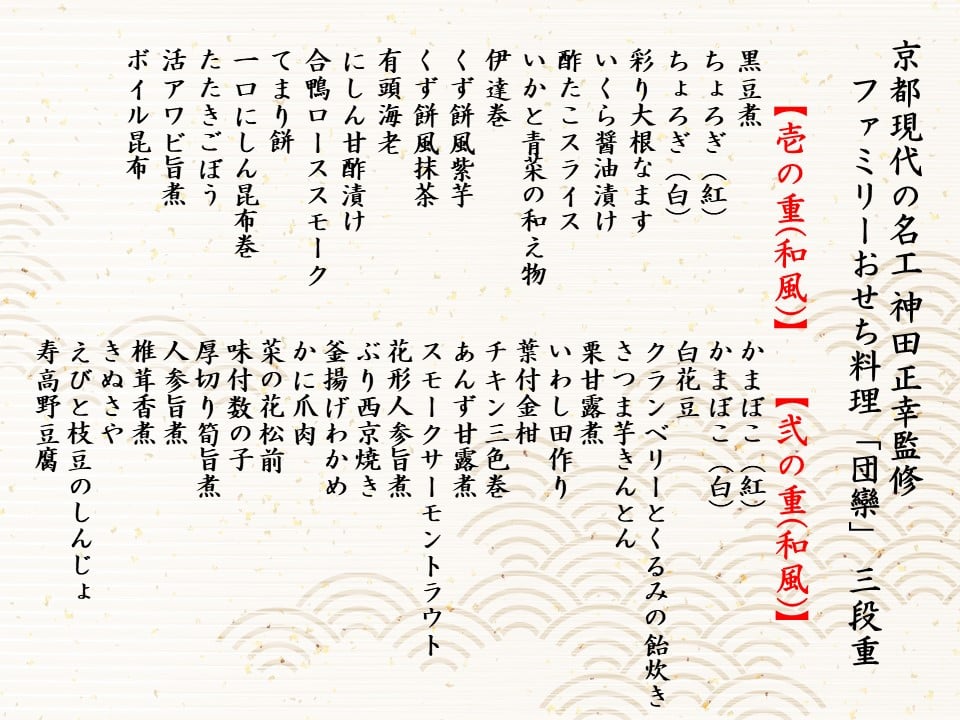 京都現代の名工 神田正幸監修
ファミリーおせち料理 「団欒」 三段重
【壱の重(和風)】
黒豆煮
ちょろぎ（紅）
ちょろぎ（白）
彩り大根なます
いくら醤油漬け
酢たこスライス
いかと青菜の和え物
伊達巻
くず餅風紫芋
くず餅風抹茶
有頭海老
にしん甘酢漬け
合鴨ローススモーク
てまり餅
一口にしん昆布巻
たたきごぼう
活アワビ旨煮
ボイル昆布
【弐の重(和風)】
かまぼこ（紅）
かまぼこ（白）
白花豆
クランベリーとくるみの飴炊き
さつま芋きんとん
栗甘露煮
いわし田作り
葉付金柑
チキン三色巻
あんず甘露煮
スモークサーモントラウト
花形人参旨煮
ぶり西京焼き
釜揚げわかめ
かに爪肉
菜の花松前
味付数の子
厚切り筍旨煮
人参旨煮
椎茸香煮
きぬさや
えびと枝豆のしんじょ
寿高野豆腐